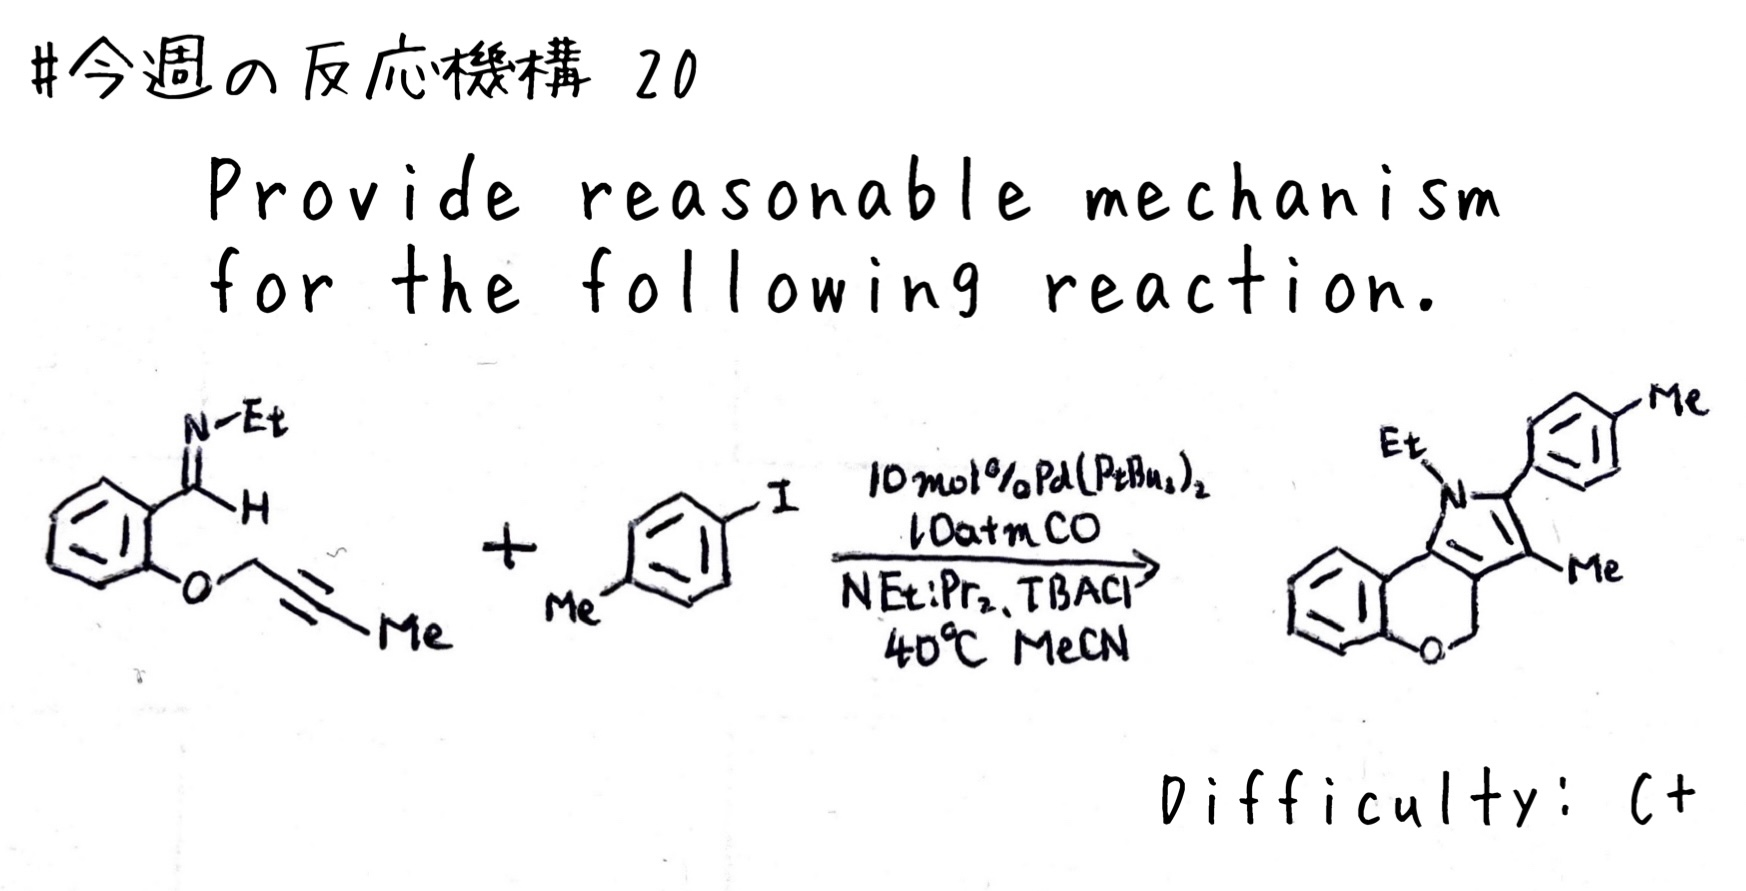 #今週の反応機構 20
Provide reasonable mechanism
for the following reaction.
N-Et
H
O
Me
+
I
Me
10mol%Pd(PtBu₃)₂
10atm CO
NEtiPr₂、TBACl
40℃ MeCN
Et
N
Me
Me
O
Difficulty: C+